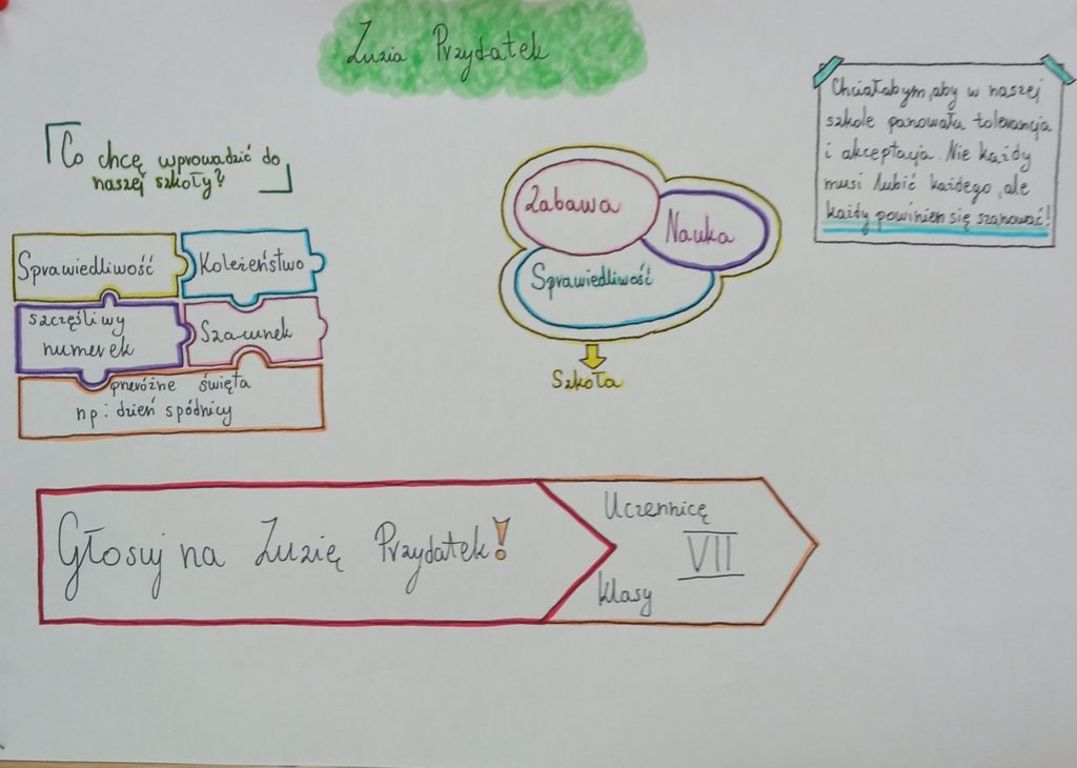 Zuzia Przydatek
Co chcę wprowadzić do
naszej szkoły?
Sprawiedliwość
Koleżeństwo
szczęśliwy
numerek
Szacunek
przeróżne święta
np: dzień spódnicy
Zabawa
Nauka
Sprawiedliwość
Szkoła
Chciałabym, aby w naszej
szkole panowała tolerancja
i akceptacja. Nie każdy
musi lubić każdego, ale
każdy powinien się szanować!
Głosuj na Zuzię Przydatek!
Uczennicę
VII
klasy